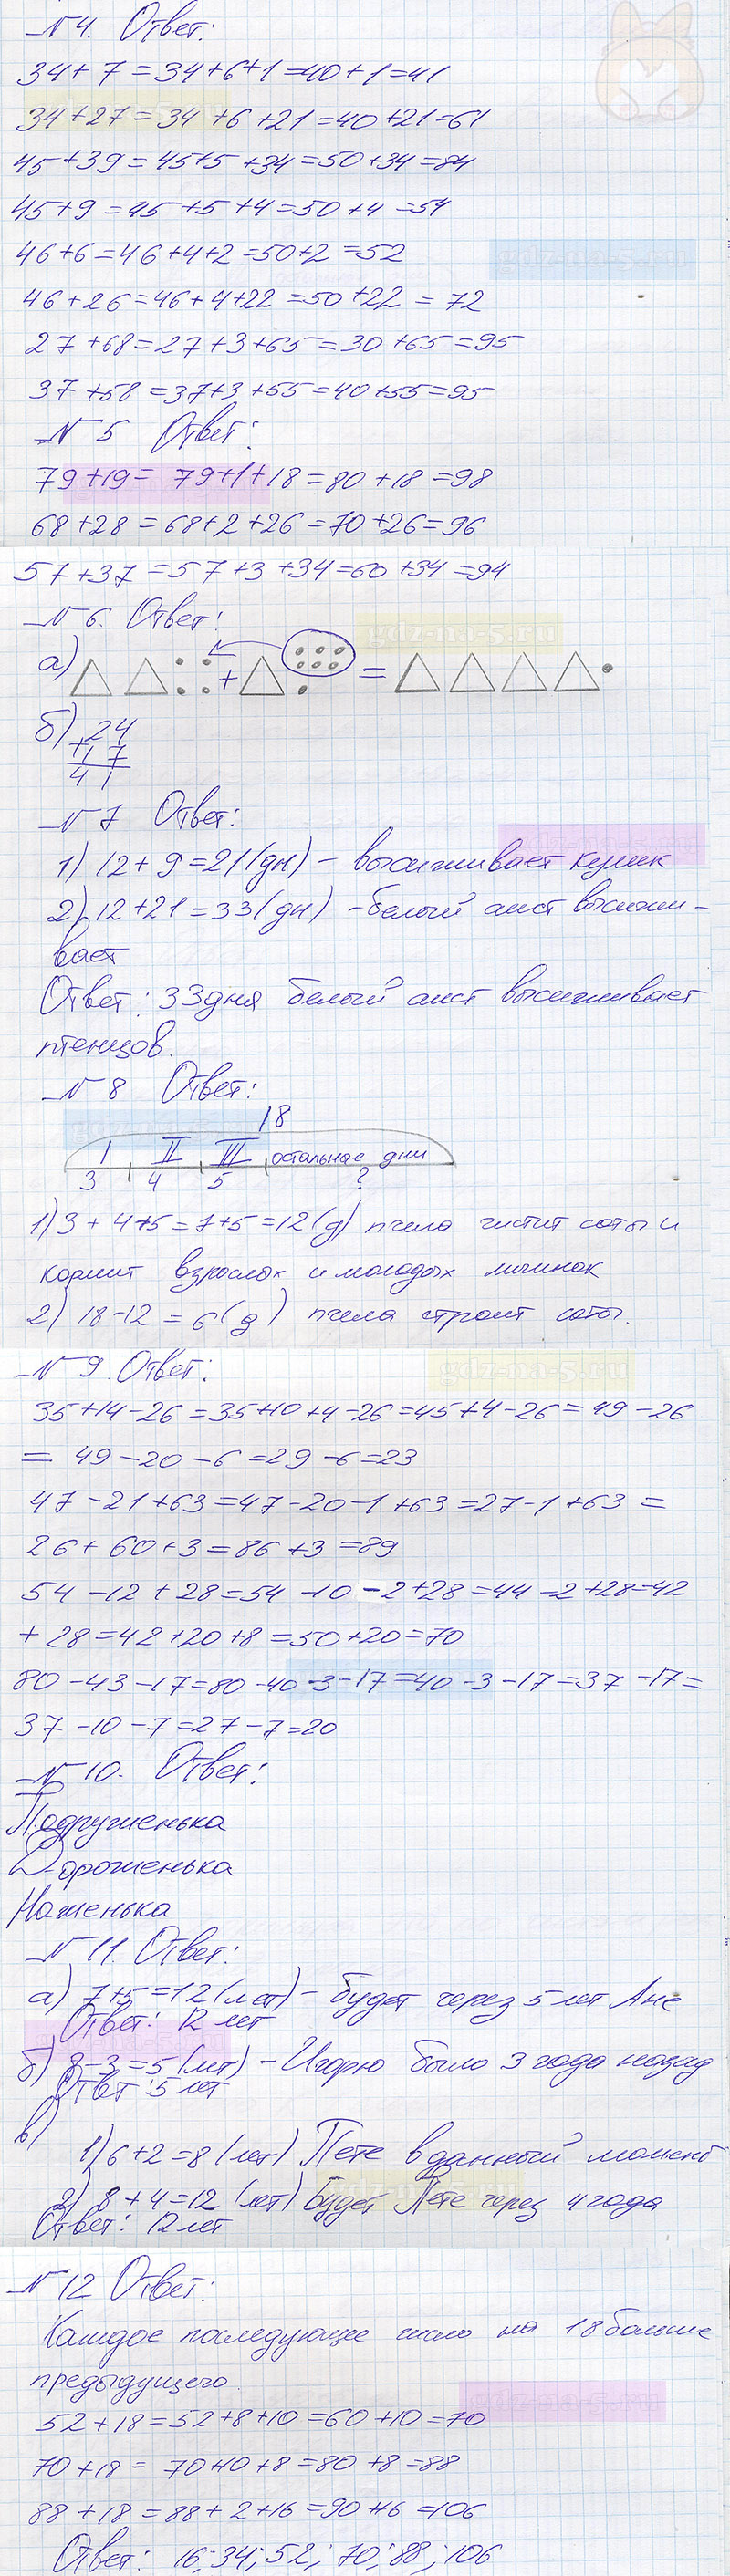 №4. Ответ:
34+7=34+6+1=40+1=41
34+27=34+6+21=40+21=61
45+39=45+5+34=50+34=84
45+9=45+5+4=50+4=54
46+6=46+4+2=50+2=52
gdz-na-5.ru
46+26=46+4+22=50+22=72
27+68=27+3+65=30+65=95
37+58=37+3+55=40+55=95
№5 Ответ:
79+19=79+1+18=80+18=98
68+28=68+2+26=70+26=96
57+37=57+3+34=60+34=94
№6. Ответ:
gdz-na-5.ru
а) + =
б) 24
+17
41
№7 Ответ:
1) 12+9=21(дн) – высиживает кулик
2) 12+21=33(дн) – белый аист высижи-
вает
Ответ: 33 дня белый аист высиживает
птенцов.
№8 Ответ:
18
I II III остальные дни
3 4 5 ?
1) 3+4+5=7+5=12(д) пчела чистит соты и
кормит взрослых и молодых личинок
2) 18-12=6(д) пчела строит соты.
№9. Ответ:
gdz-na-5.ru
35+14-26=35+10+4-26=45+4-26=49-26
=49-20-6=29-6=23
47-21+63=47-20-1+63=27-1+63=
26+60+3=86+3=89
54-12+28=54-10-2+28=44-2+28=42
+28=42+20+8=50+20=70
80-43-17=80-40-3-17=40-3-17=37-17=
37-10-7=27-7=20
№10. Ответ:
Подруженька
Дороженька
Ноженька
№11. Ответ:
а) 7+5=12(лет) – будет через 5 лет Ане
Ответ: 12 лет
б) 8-3=5(лет) – Игорю было 3 года назад
Ответ: 5 лет
в)
1) 6+2=8(лет) Пете в данный момент
2) 8+4=12(лет) будет Пете через 4 года
Ответ: 12 лет
№12 Ответ:
Каждое последующее число на 18 больше
предыдущего.
52+18=52+8+10=60+10=70
70+18=70+10+8=80+8=88
88+18=88+2+16=90+16=106
Ответ: 16; 34; 52; 70; 88; 106